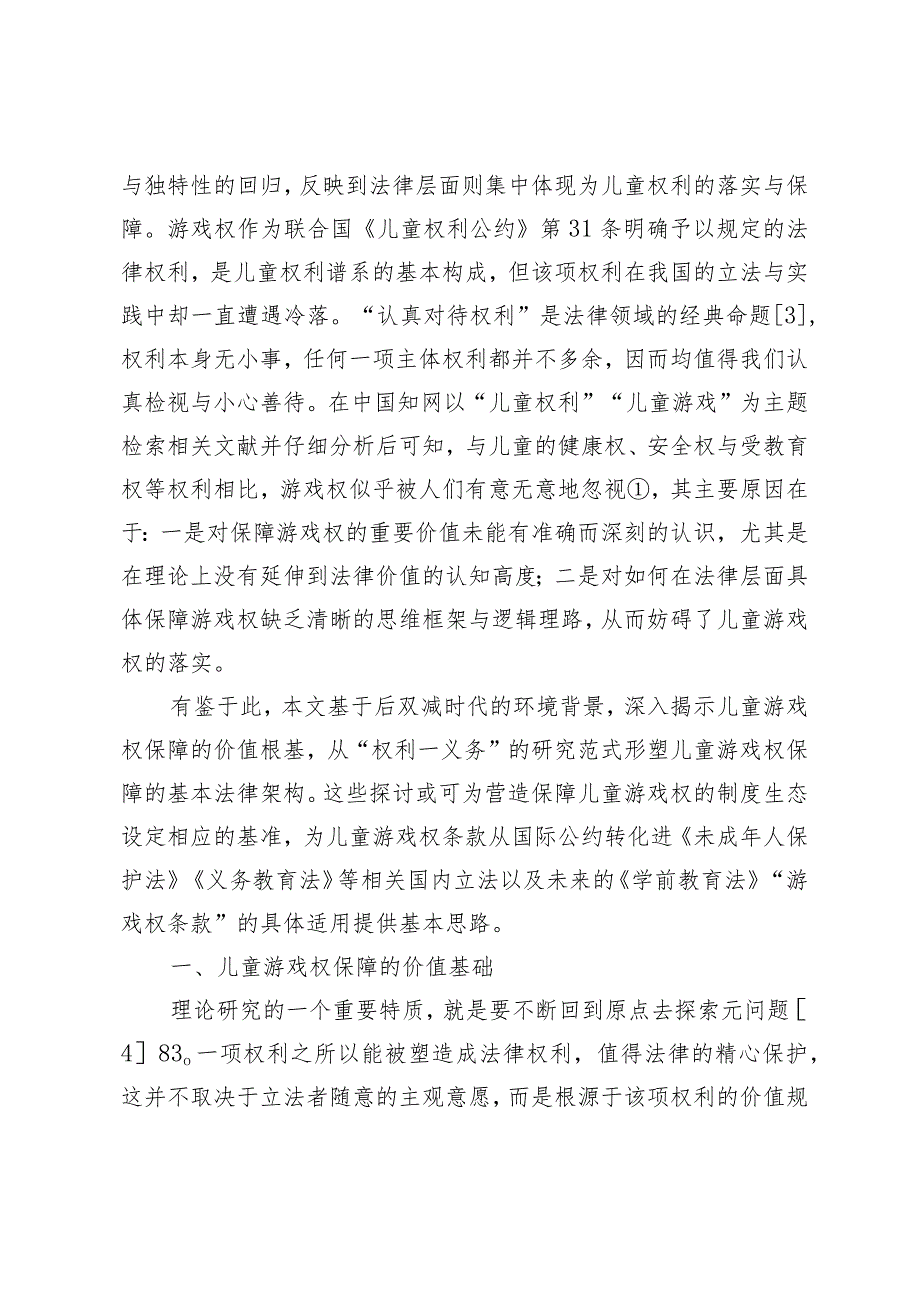 与独特性的回归，反映到法律层面则集中体现为儿童权利的落实与保
障。游戏权作为联合国《儿童权利公约》第 31 条明确予以规定的法
律权利，是儿童权利谱系的基本构成，但该项权利在我国的立法与实
践中却一直遭遇冷落。“认真对待权利”是法律领域的经典命题[3]，
权利本身无小事，任何一项主体权利都并不多余，因而均值得我们认
真检视与小心善待。在中国知网以“儿童权利”“儿童游戏”为主题
检索相关文献并仔细分析后可知，与儿童的健康权、安全权与受教育
权等权利相比，游戏权似乎被人们有意无意地忽视①，其主要原因在
于：一是对保障游戏权的重要价值未能有准确而深刻的认识，尤其是
在理论上没有延伸到法律价值的认知高度；二是对如何在法律层面具
体保障游戏权缺乏清晰的思维框架与逻辑理路，从而妨碍了儿童游戏
权的落实。
有鉴于此，本文基于后双减时代的环境背景，深入揭示儿童游戏
权保障的价值根基，从“权利一义务”的研究范式形塑儿童游戏权保
障的基本法律架构。这些探讨或可为营造保障儿童游戏权的制度生态
设定相应的基准，为儿童游戏权条款从国际公约转化进《未成年人保
护法》《义务教育法》等相关国内立法以及未来的《学前教育法》“游
戏权条款”的具体适用提供基本思路。
一、儿童游戏权保障的价值基础
理论研究的一个重要特质，就是要不断回到原点去探索元问题[
4] 83o 一项权利之所以能被塑造成法律权利，值得法律的精心保护，
这并不取决于立法者随意的主观意愿，而是根源于该项权利的价值规